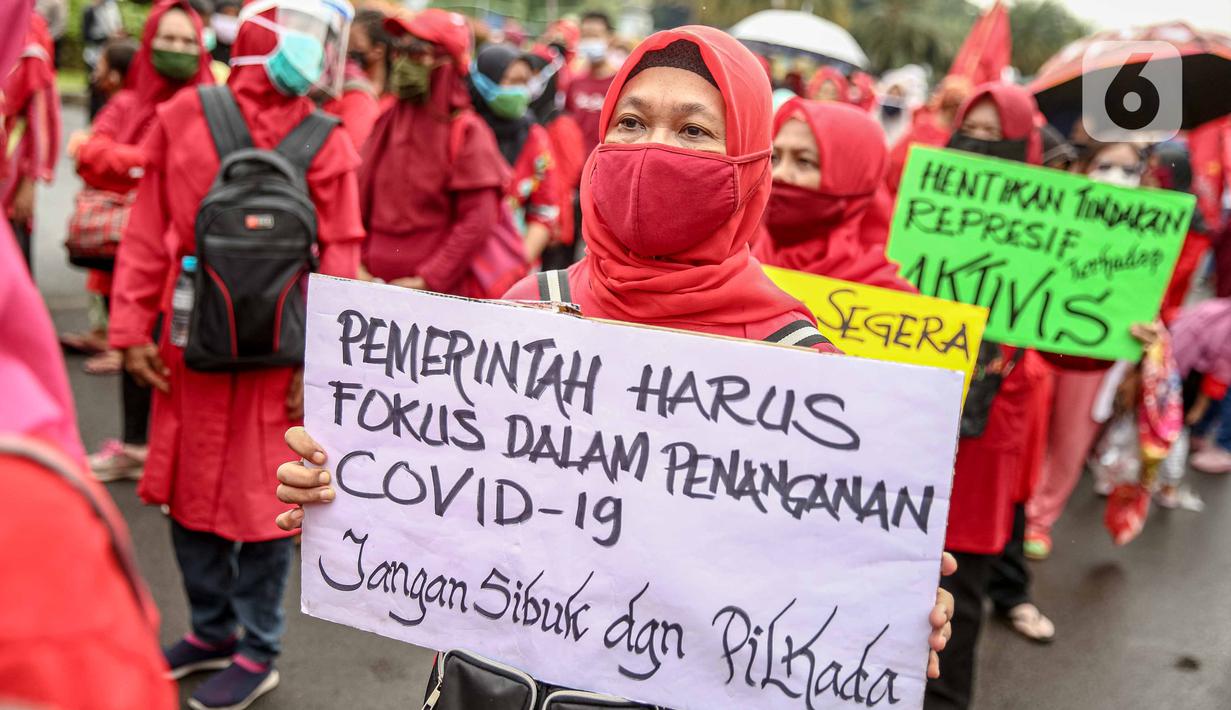 6
HENTIKAN TINDAKAN
REPRESIF terhadap
AKTIVIS
SEGERA
PEMERINTAH HARUS
FOKUS DALAM PENANGANAN
COVID-19
Jangan Sibuk dgn PiLKada